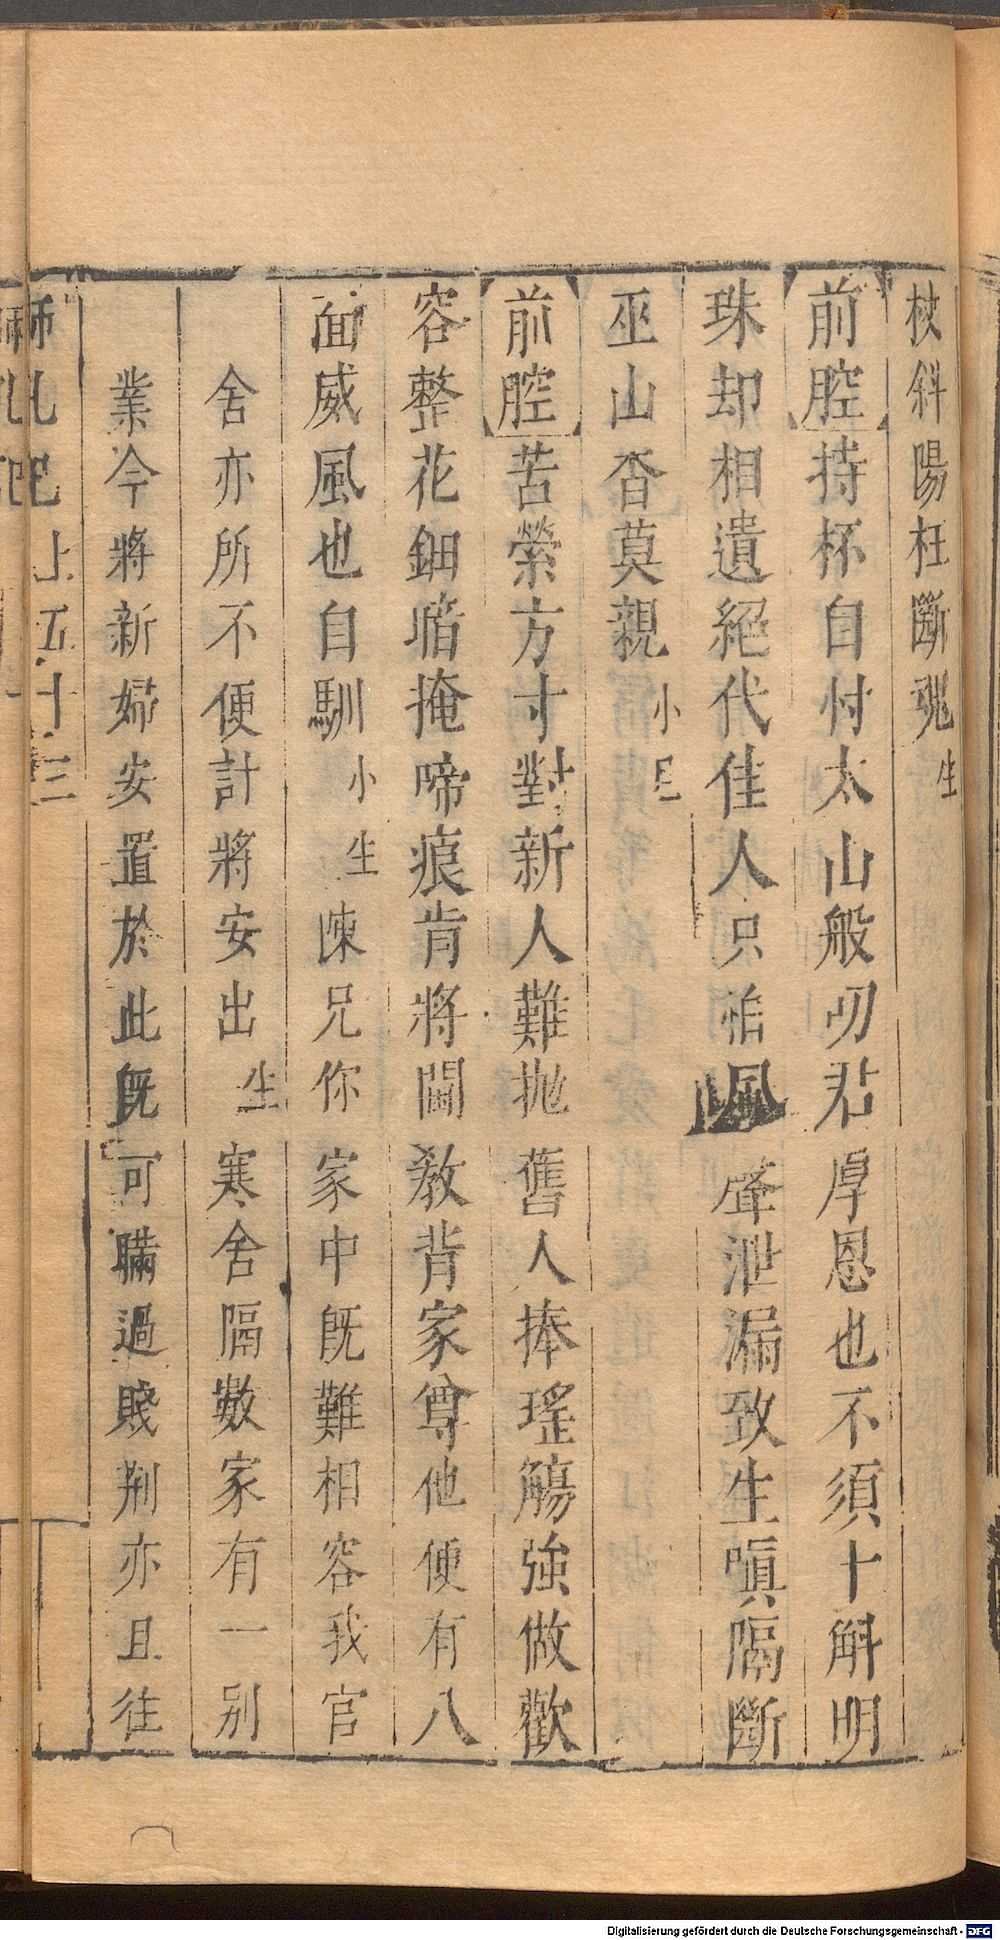 杖斜陽枉斷魂生
前腔持杯自忖太山般刃君厚恩也不須十斛明
珠却相遺絕代佳人只怕風聲泄漏致生嗔隔斷
巫山杳莫親小旦
前腔苦縈方寸對新人難抛舊人捧瑤觴強做歡
容整花鈿暗掩啼痕肯將閫教背家尊他便有八
面威風也自馴小生陳兄你家中既難相容我官
舍亦所不便計將安出生寒舍隔數家有一別
業今將新婦安置於此既可瞞過賤荆亦且往
獅吼記 上 五十三
Digitalisierung gefördert durch die Deutsche Forschungsgemeinschaft - DFG